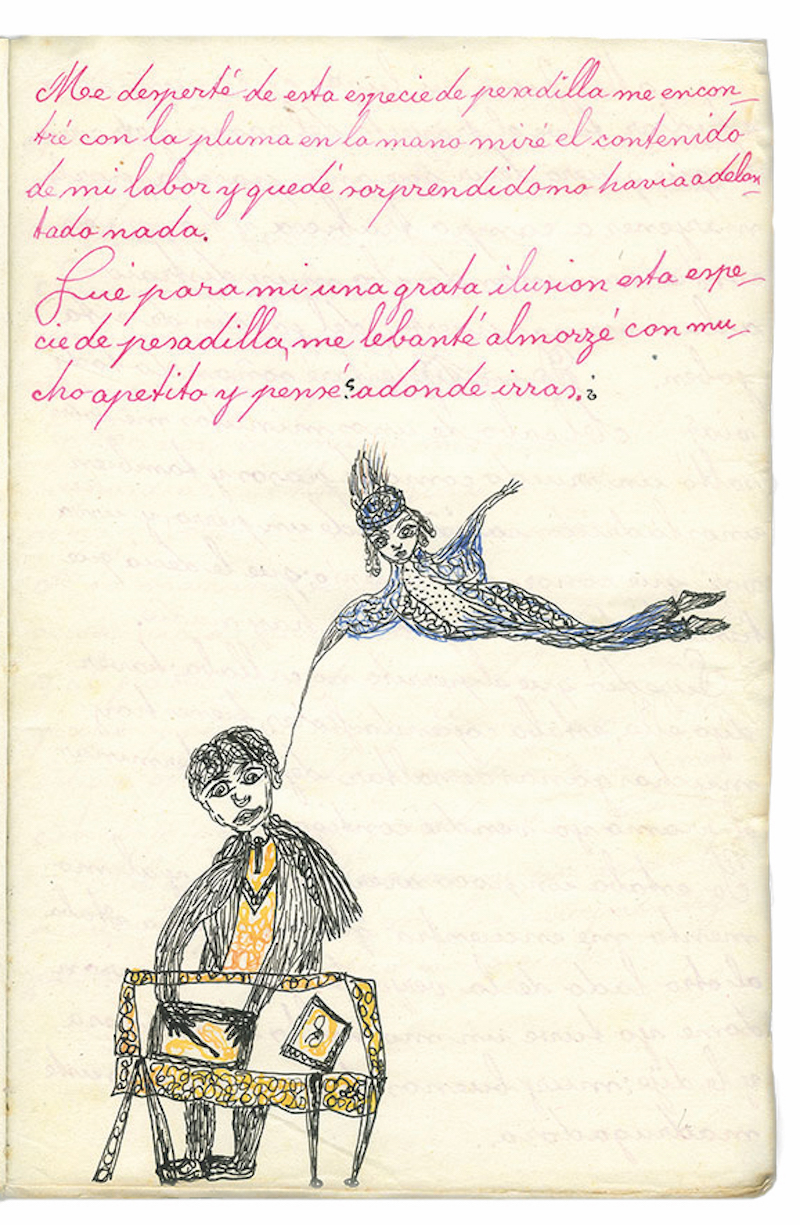 Me desperté de esta especie de pesadilla me encon-
tré con la pluma en la mano miré el contenido
de mi labor y quedé sorprendido no havia adelan-
tado nada.
Fué para mi una grata ilusion esta espe-
cie de pesadilla, me lebanté almorzé con mu-
cho apetito y pensé ¿adonde irras.?